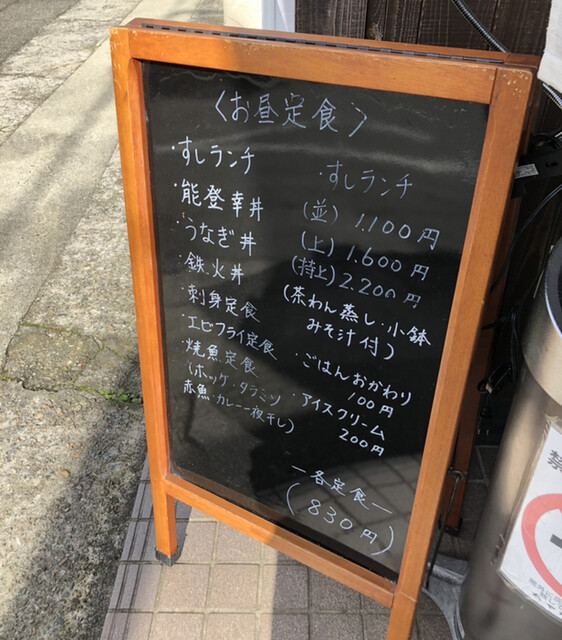 〈お昼定食〉
・すしランチ
・能登幸丼
・うなぎ丼
・鉄火丼
・刺身定食
・エビフライ定食
・焼魚定食
(ホッケ・タラミリン
赤魚・カレー一夜干し)
・すしランチ
(並) 1.100円
(上) 1.600円
(特上) 2.200円
(茶わん蒸し・小鉢
みそ汁付)
・ごはんおかわり
100円
・アイスクリーム
200円
ー各定食ー
(830円)
禁